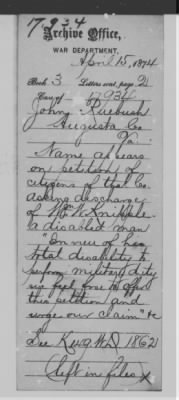 7934
Archive Office,
WAR DEPARTMENT,
April 15, 1874
Book 3 Letters &c. page 2
Case of 7934
John Ruebush
Augusta Co
Va.
Name appears
on petition of
citizens of that Co.
asking discharge
of
a disabled man
"In view of his
total disability to
perform military duty
we feel free to offer
this petition and
urge our claim" &c
See W.D. 1862
(left in files)